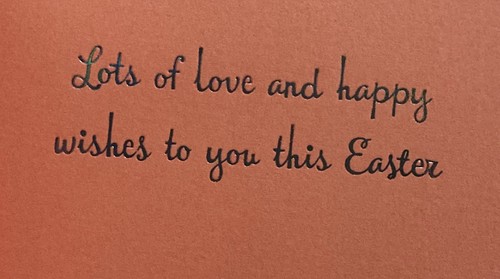 Lots of love and happy
wishes to you this Easter